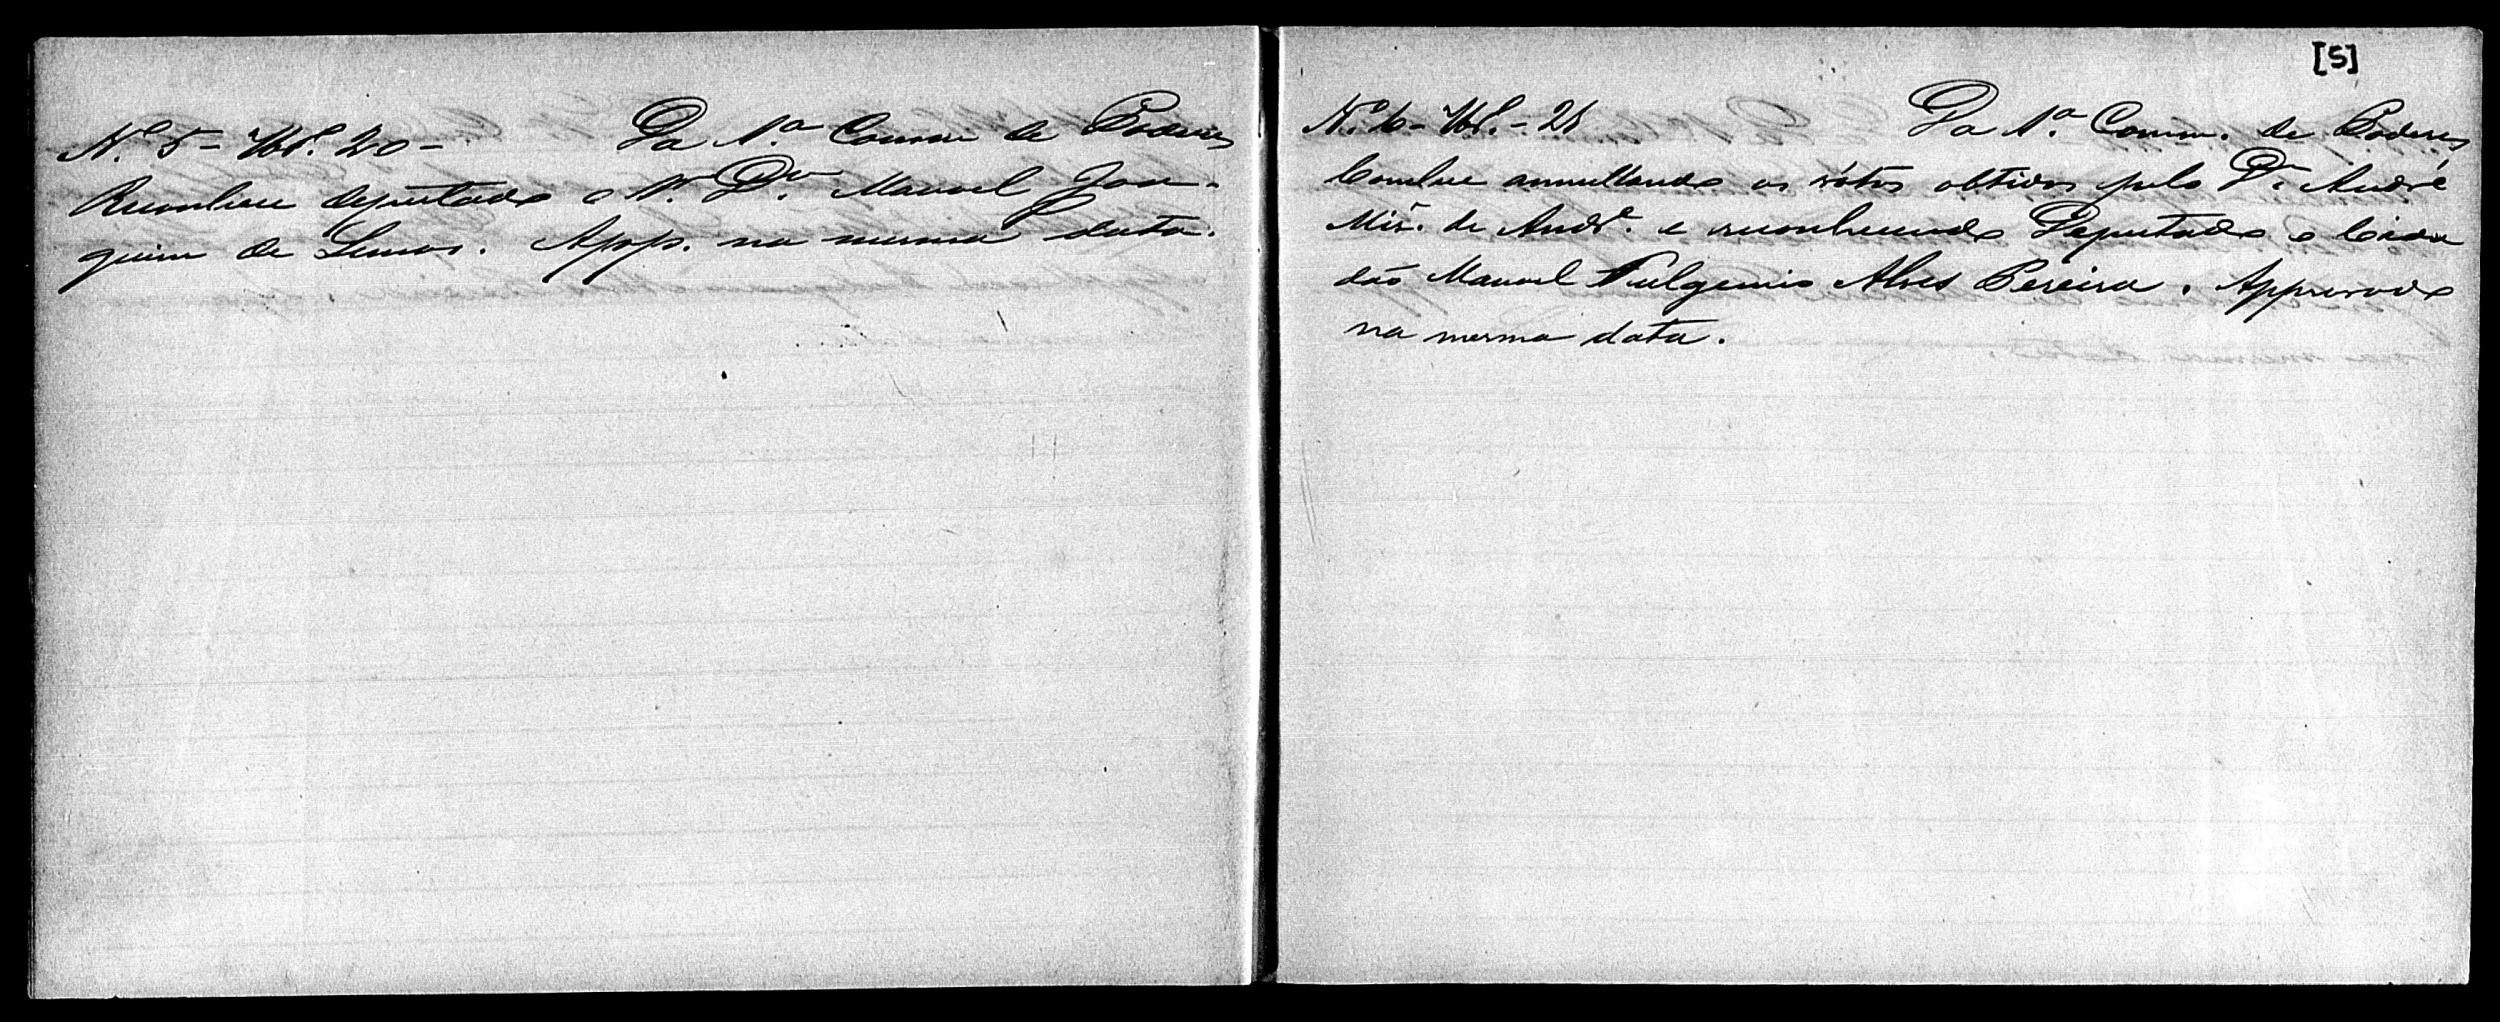 Nº. 5 - Vol. 20 - Da 1ª Comm de Poderes
Reconhece deputado o Sr. Dr. Manoel Joa-
quim de Lemos. App. na mesma data.
[5]
Nº. 6 - Vol. - 21 Da 1ª. Comm. de Poderes,
Conclue annullando os vótos obtidos pelo Dr. André
Mis. de Andr.e e reconhecendo Deputado o Cida
dão Manoel Fulgencio Alves Pereira. Approvado
na mesma data.